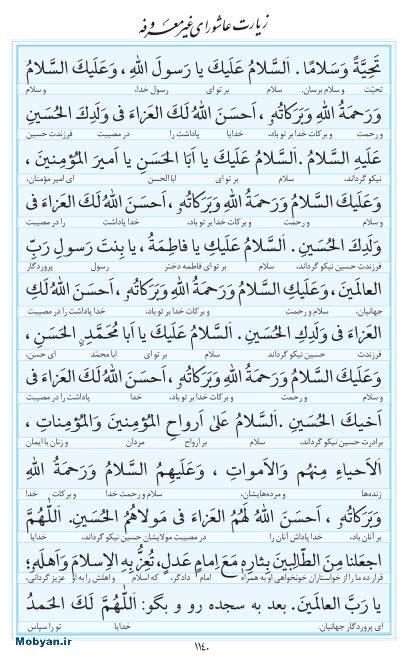 زیارت عاشورای غیر معروفه
تَحِيَّةً وَسَلامًا . اَلسَّلامُ عَلَيكَ يا رَسولَ اللهِ ، وَعَلَيكَ السَّلامُ
تحیّت و سلام برسان. سلام بر تو ای رسول خدا، و سلام
وَرَحمَةُ اللهِ وَبَرَكاتُهُ ، اَحسَنَ اللهُ لَكَ العَزاءَ فى وَلَدِكَ الحُسَينِ
و رحمت و برکات خدا بر تو باد، خدایا پاداشت را در مصیبت فرزندت حسین
عَلَيهِ السَّلامُ . اَلسَّلامُ عَلَيكَ يا اَبَا الحَسَنِ يا اَميرَ المُؤمِنينَ ،
نیکو گرداند، سلام بر تو ای ابا الحسن ای امیر مؤمنان،
وَعَلَيكَ السَّلامُ وَرَحمَةُ اللهِ وَبَرَكاتُهُ ، اَحسَنَ اللهُ لَكَ العَزاءَ فى
و سلام و رحمت و برکات خدا بر تو باد، خدا پاداشت را در مصیبت
وَلَدِكَ الحُسَينِ . اَلسَّلامُ عَلَيكِ يا فاطِمَةُ ، يا بِنتَ رَسولِ رَبِّ
فرزندت حسین نیکو گرداند، سلام بر تو ای فاطمه دختر رسول پروردگار
العالَمينَ ، وَعَلَيكِ السَّلامُ وَرَحمَةُ اللهِ وَبَرَكاتُهُ ، اَحسَنَ اللهُ لَكِ
جهانیان، سلام و رحمت و برکات خدا بر تو باد، خدا پاداشت را در مصیبت
العَزاءَ فى وَلَدِكِ الحُسَينِ . اَلسَّلامُ عَلَيكَ يا اَبا مُحَمَّدٍ ۣ الحَسَنِ ،
فرزندت حسین نیکو گرداند. سلام بر تو ای ابا محمّد ای حسن،
وَعَلَيكَ السَّلامُ وَرَحمَةُ اللهِ وَبَرَكاتُهُ ، اَحسَنَ اللهُ لَكَ العَزاءَ فى
و سلام و رحمت و برکات خدا بر تو باد، خدا پاداشت را در مصیبت
اَخيكَ الحُسَينِ . اَلسَّلامُ عَلىٰ اَرواحِ المُؤمِنينَ وَالمُؤمِناتِ ،
برادرت حسین نیکو گرداند، سلام بر ارواح مردان و زنان با ایمان
اَلاَحياءِ مِنهُم وَالاَمواتِ ، وَعَلَيهِمُ السَّلامُ وَرَحمَةُ اللهِ
زنده‌ها و مرده‌هایشان، سلام و رحمت خدا و برکات خدا
وَبَرَكاتُهُ ، اَحسَنَ اللهُ لَهُمُ العَزاءَ فى مَولاهُمُ الحُسَينِ. اَللّٰهُمَّ
بر آنان باد، خدا پاداش آنان را در مصیبت مولایشان حسین نیکو گرداند، خدایا
اجعَلنا مِنَ الطّالِبينَ بِثارِهِ مَعَ اِمامٍ عَدلٍ، تُعِزُّ بِهِ الاِسلامَ وَاَهلَهُ؛
قرار ده ما را از خواستاران خونخواهی او به همراه امام دادگر، که اسلام و اهلش را به او عزیز گردانی،
يا رَبَّ العالَمينَ. بعد به سجده رو و بگو: اَللّٰهُمَّ لَكَ الحَمدُ
ای پروردگار جهانیان. خدایا تو را سپاس
۱۱٤۰
Mobyan.ir